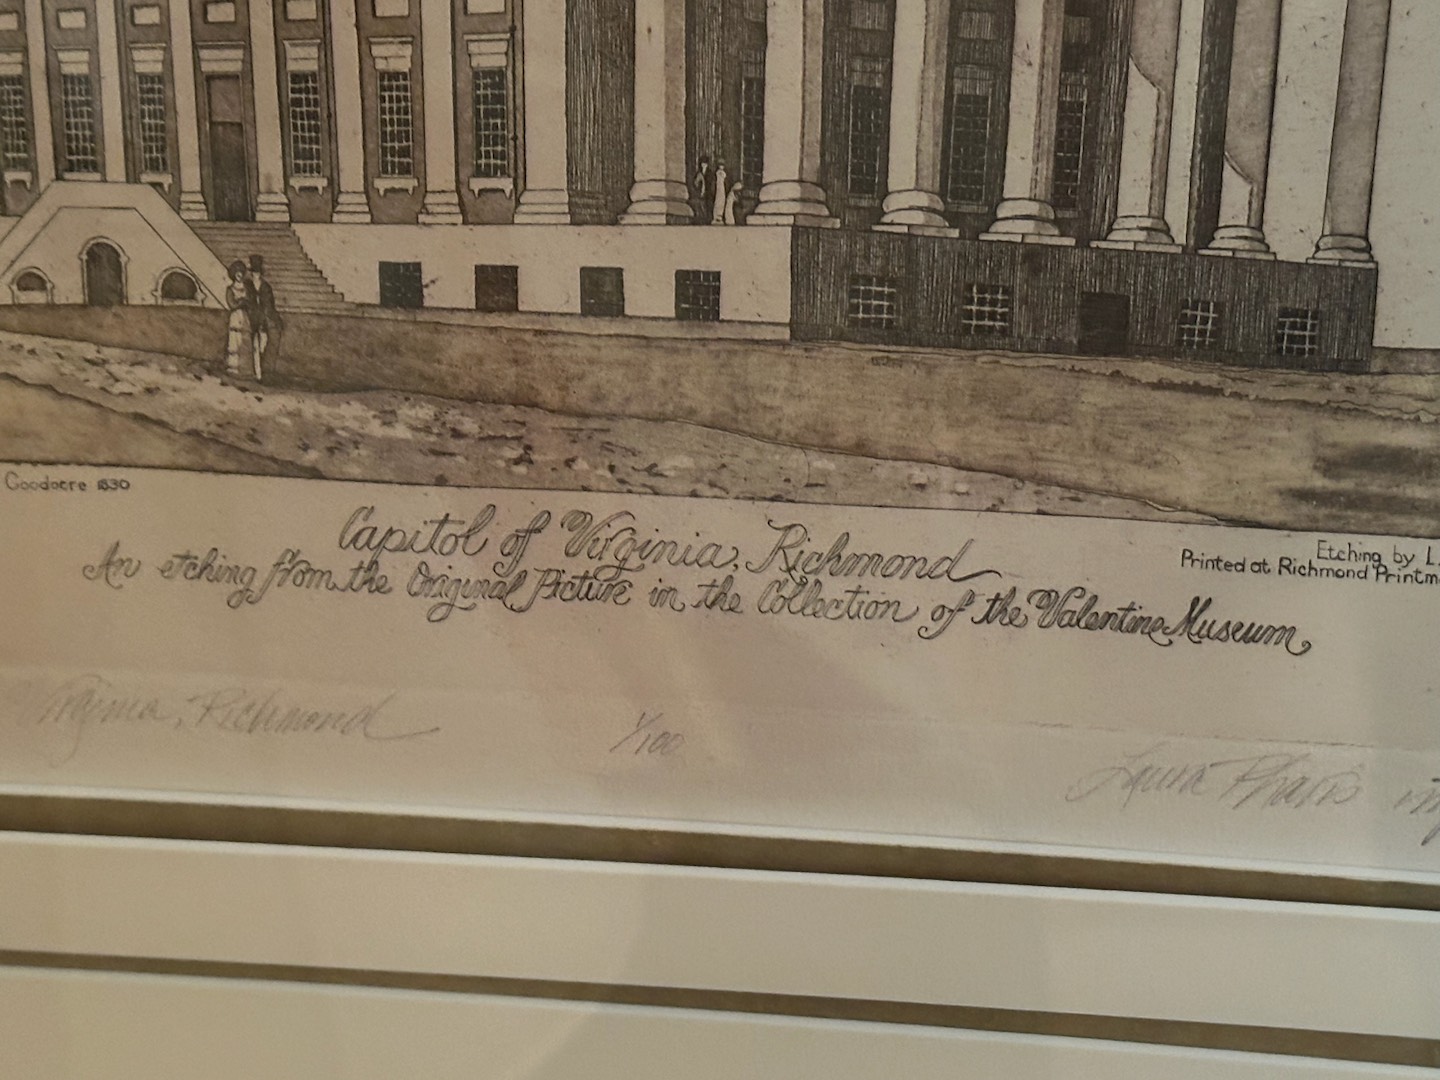 Goodacre 1830
Capitol of Virginia, Richmond
An etching from the Original Picture in the Collection of the Valentine Museum
Etching by L.
Printed at Richmond Printm
Virginia, Richmond
1/100
Laura Pharis